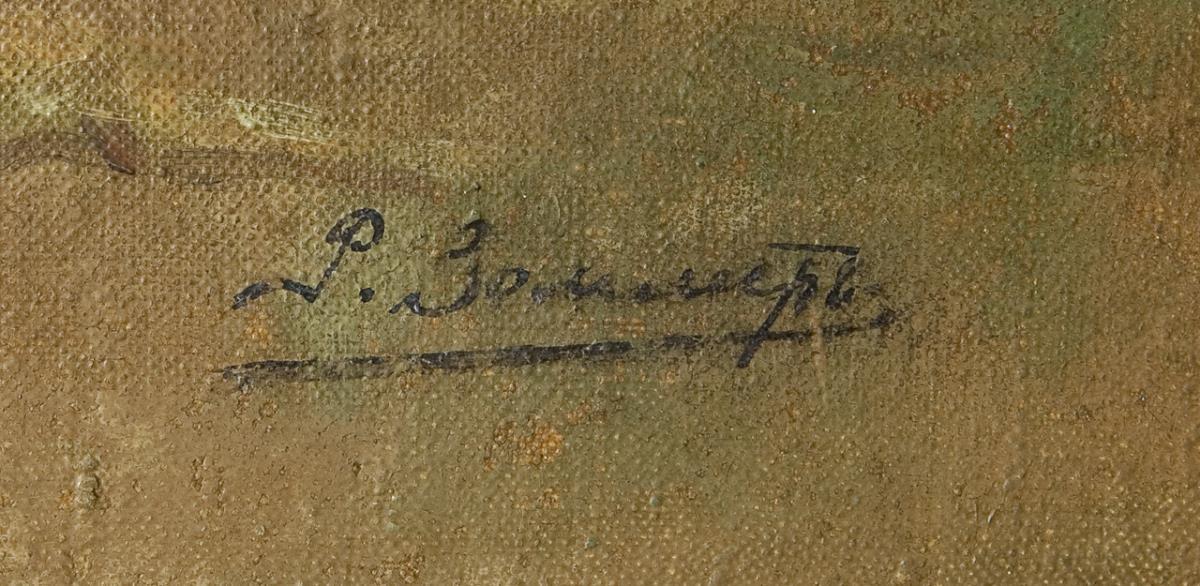 Р. Зоммеръ